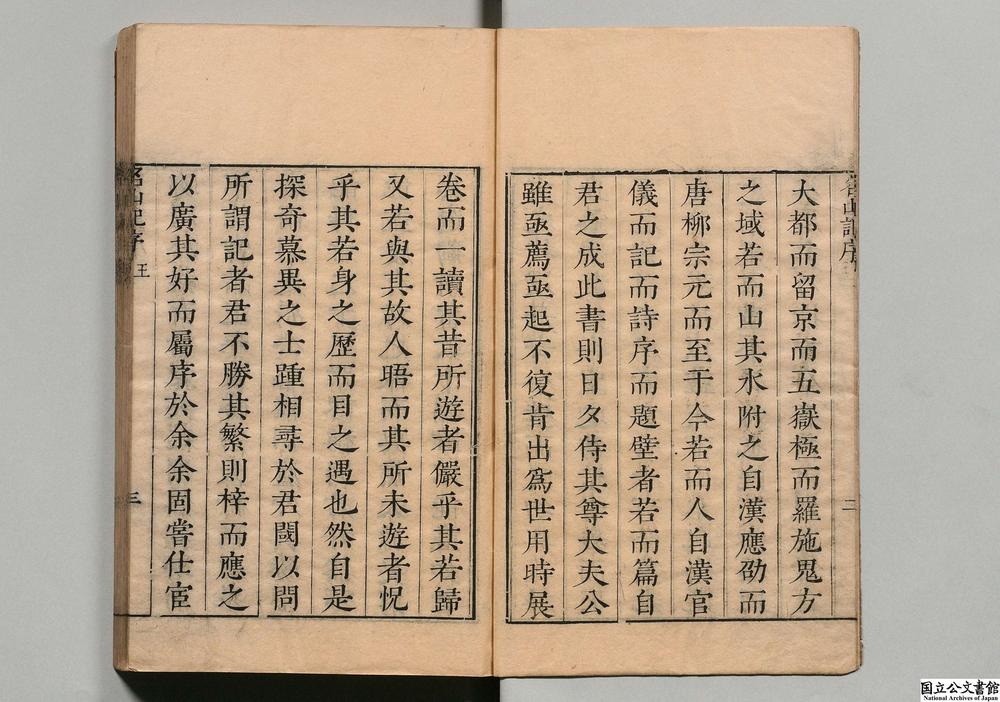 大都而留京而五嶽極而羅施鬼方
之域若而山其水附之自漢應劭而
唐柳宗元而至于今若而人自漢官
儀而記而詩序而題壁者若而篇自
君之成此書則日夕侍其尊大夫公
雖亟薦亟起不復肯出爲世用時展
卷而一讀其昔所遊者儼乎其若歸
又若與其故人晤而其所未遊者怳
乎其若身之歷而目之遇也然自是
探奇慕異之士踵相尋於君閾以問
所謂記者君不勝其繁則梓而應之
以廣其好而屬序於余余固嘗仕宦
名山記序 王
三
国立公文書館
National Archives of Japan